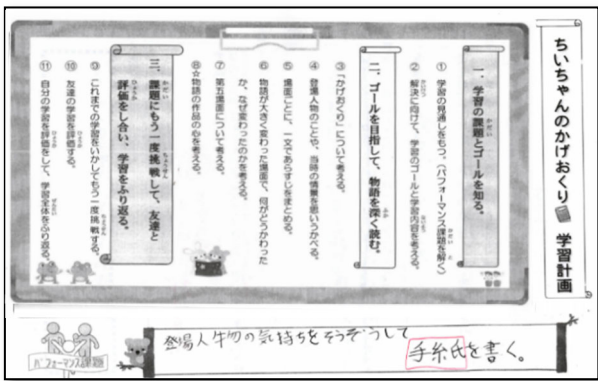 ちいちゃんのかげおくり 学習計画
一．学習の課題とゴールを知る。
① 学習の見通しをもつ。（パフォーマンス課題を解く）
② 解決に向けて、学習のゴールと学習内容を考える。
二．ゴールを目指して、物語を深く読む。
③ 「かげおくり」について考える。
④ 登場人物のことや、当時の情景を思いうかべる。
⑤ 場面ごとに、一文であらすじをまとめる。
⑥ 物語が大きく変わった場面で、何がどうかわった
か、なぜ変わったのかを考える。
⑦ 第五場面について考える。
⑧☆物語の作品の心を考える。
三．課題にもう一度挑戦して、友達と
評価をし合い、学習をふり返る。
⑨ これまでの学習をいかしてもう一度挑戦する。
⑩ 友達の学習を評価する。
⑪ 自分の学習を評価をして、学習全体をふり返る。
パフォーマンス課題
登場人物の気持ちをそうぞうして
手紙を書く。